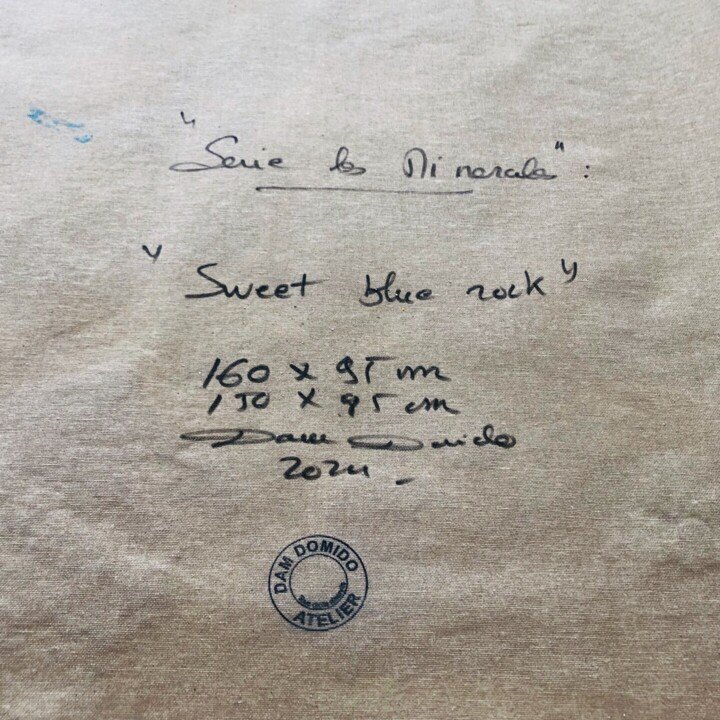 "Serie les Minerales" :
"Sweet blue rock"
160 x 95 cm
150 x 95 cm
Dam Domido
2024
DAM DOMIDO
ATELIER